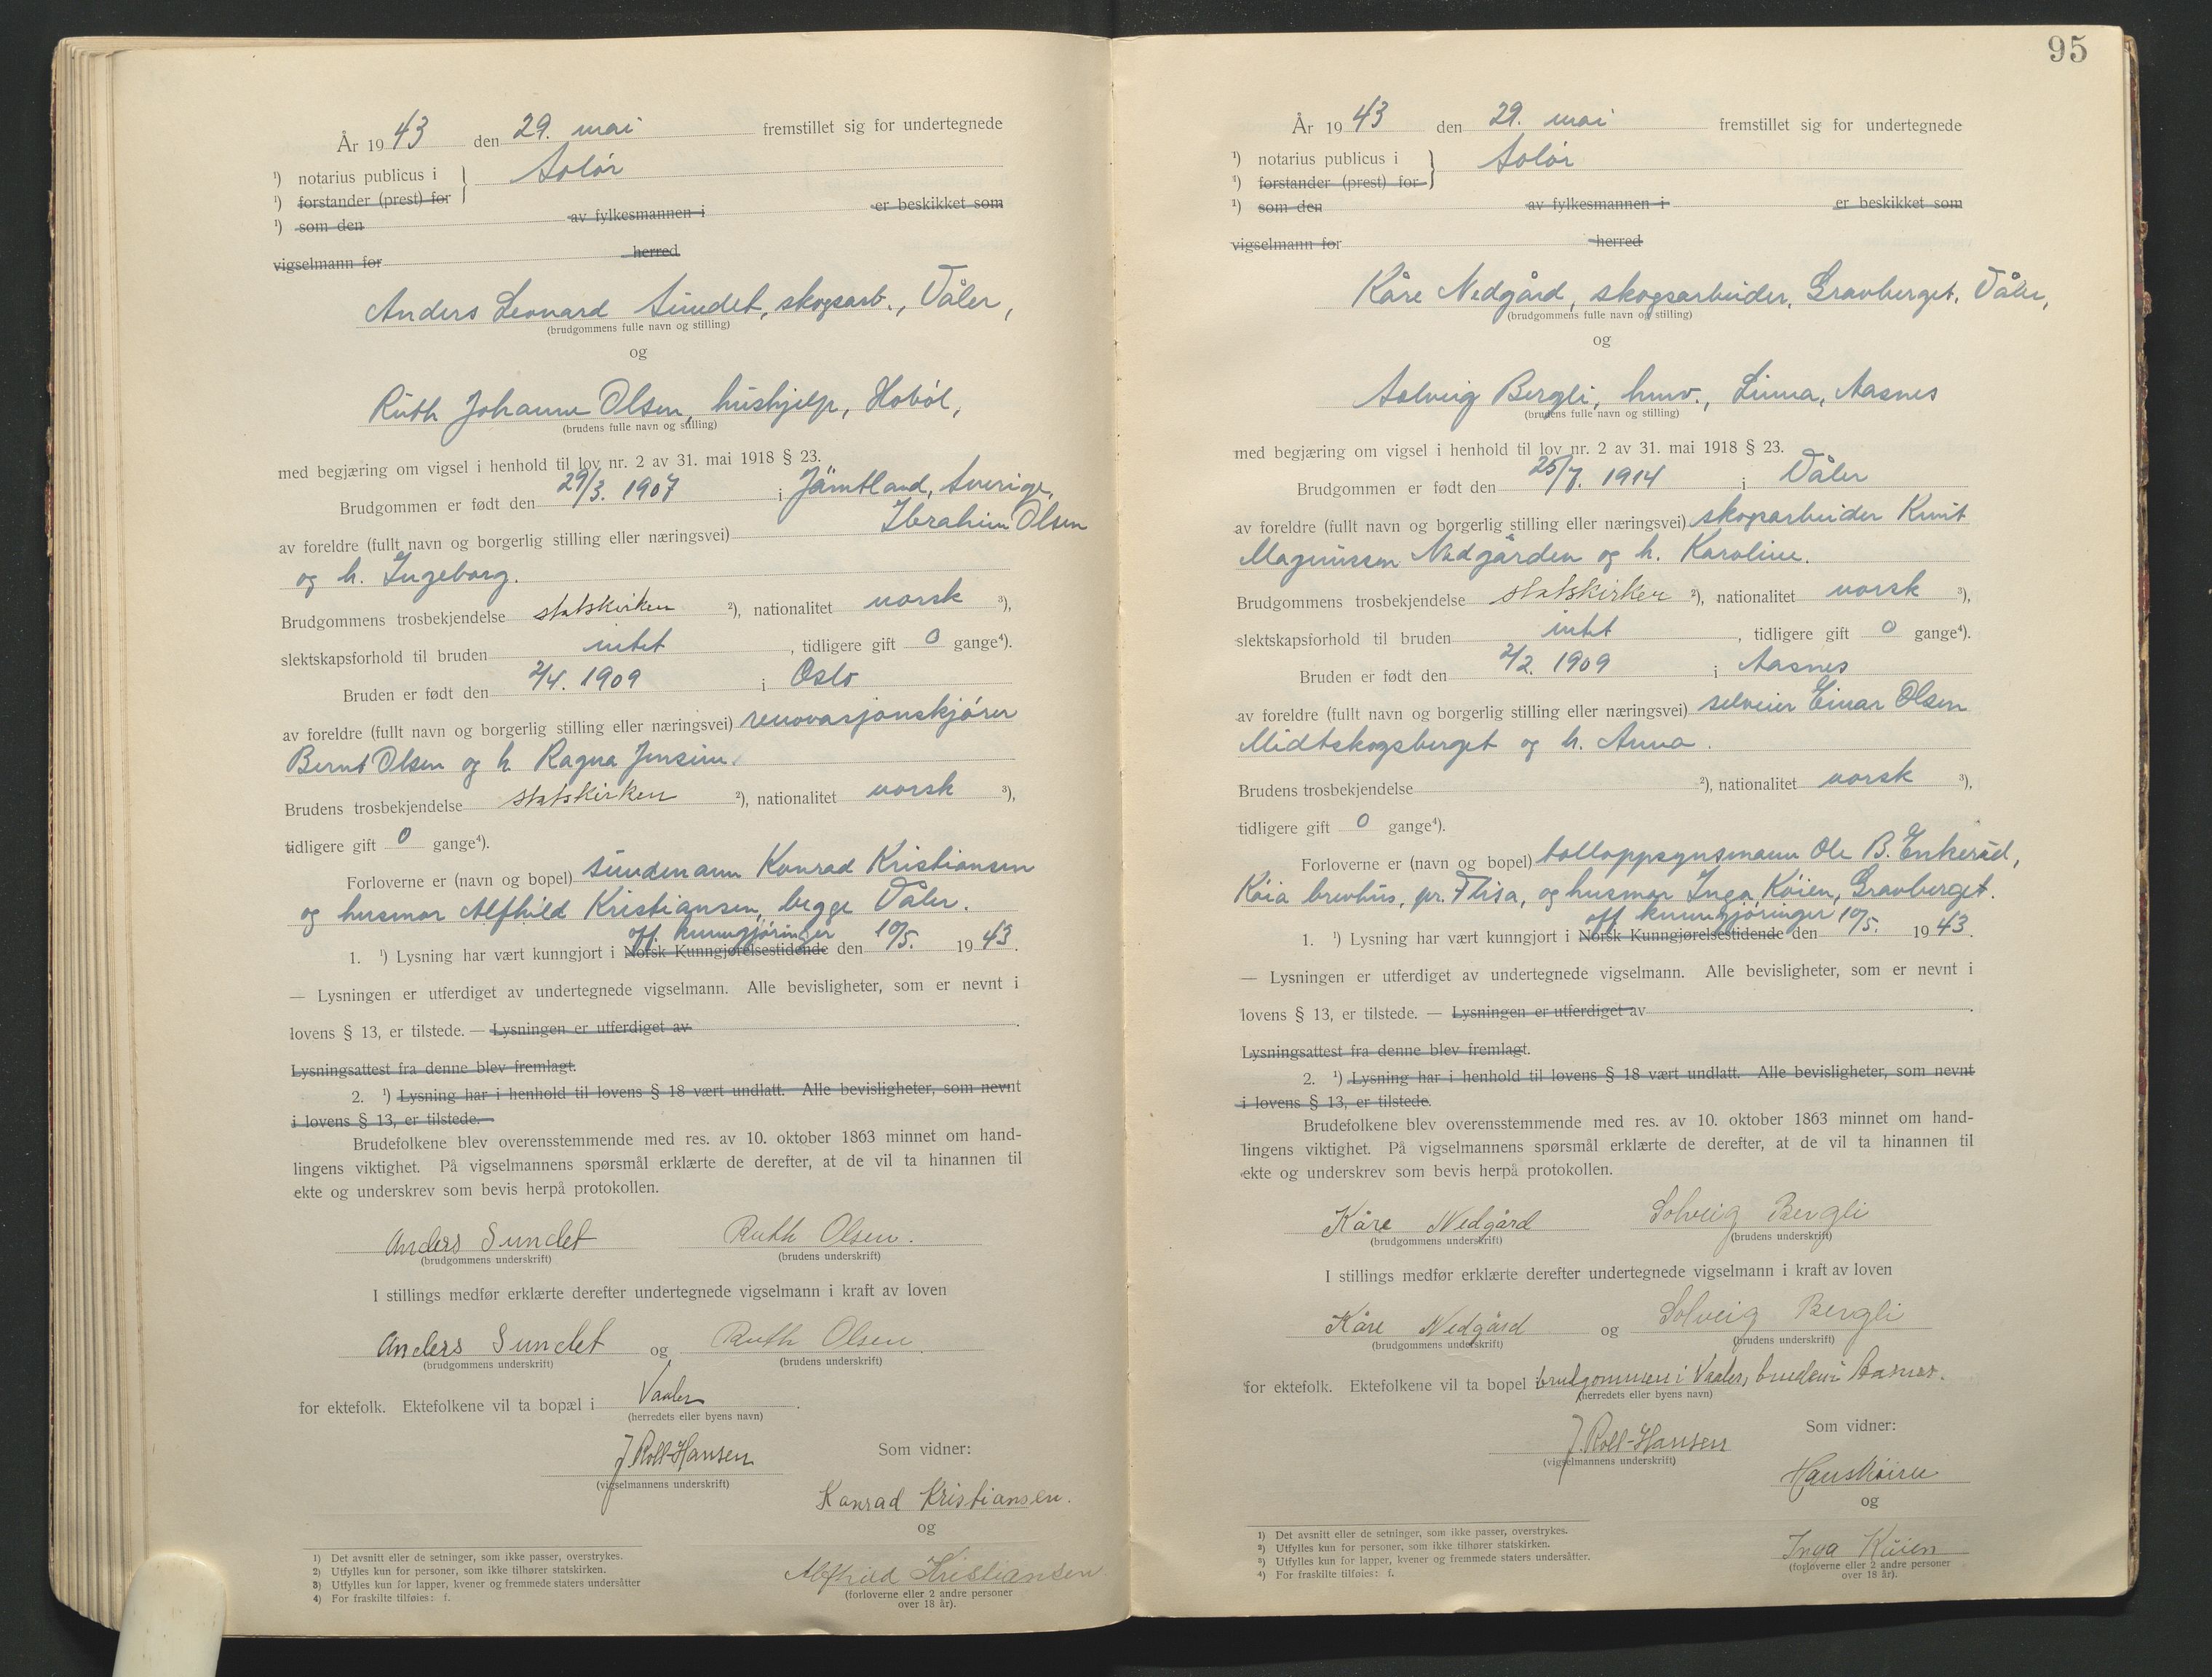 År 1943 den 29. mai fremstillet sig for undertegnede
¹) notarius publicus i } Solør
¹) forstander (prest) for
¹) som den av fylkesmannen i er beskikket som
vigselmann for herred
Anders Leonard Sundet, skogsarb., Våler,
(brudgommens fulle navn og stilling)
og
Ruth Johanne Olsen, hushjelp, Hobøl,
(brudens fulle navn og stilling)
med begjæring om vigsel i henhold til lov nr. 2 av 31. mai 1918 § 23.
Brudgommen er født den 29/3. 1907 i Jämtland, Sverige,
av foreldre (fullt navn og borgerlig stilling eller næringsvei) Ibrahim Olsen
og h. Ingeborg.
Brudgommens trosbekjendelse statskirken ²), nationalitet norsk ³),
slektskapsforhold til bruden intet, tidligere gift 0 gange⁴).
Bruden er født den 2/4. 1909 i Oslo
av foreldre (fullt navn og borgerlig stilling eller næringsvei) renovasjonskjører
Bernt Olsen og h. Ragna Jensine.
Brudens trosbekjendelse statskirken ²), nationalitet norsk ³),
tidligere gift 0 gange⁴).
Forloverne er (navn og bopel) sundmann Konrad Kristiansen
og husmor Alfhild Kristiansen, begge Våler.
off. kunngjøringer
1. ¹) Lysning har vært kunngjort i Norsk Kunngjørelsestidende den 10/5. 1943.
— Lysningen er utferdiget av undertegnede vigselmann. Alle bevisligheter, som er nevnt i
lovens § 13, er tilstede. — Lysningen er utferdiget av
Lysningsattest fra denne blev fremlagt.
2. ¹) Lysning har i henhold til lovens § 18 vært undlatt. Alle bevisligheter, som nevnt
i lovens § 13, er tilstede.
Brudefolkene blev overensstemmende med res. av 10. oktober 1863 minnet om hand-
lingens viktighet. På vigselmannens spørsmål erklærte de derefter, at de vil ta hinannen til
ekte og underskrev som bevis herpå protokollen.
Anders Sundet Ruth Olsen.
(brudgommens underskrift) (brudens underskrift)
I stillings medfør erklærte derefter undertegnede vigselmann i kraft av loven
Anders Sundet og Ruth Olsen
(brudgommens underskrift) (brudens underskrift)
for ektefolk. Ektefolkene vil ta bopæl i Vaaler.
(herredets eller byens navn)
J. Roll-Hansen Som vidner:
(vigselmannens underskrift)
Konrad Kristiansen.
og
Alfhild Kristiansen
(forloverne eller 2 andre personer
over 18 år).
1) Det avsnitt eller de setninger, som ikke passer, overstrykes.
2) Utfylles kun for personer, som ikke tilhører statskirken.
3) Utfylles kun for lapper, kvener og fremmede staters undersåtter
4) For fraskilte tilføies: f.
95
År 1943 den 29. mai fremstillet sig for undertegnede
¹) notarius publicus i } Solør
¹) forstander (prest) for
¹) som den av fylkesmannen i er beskikket som
vigselmann for herred
Kåre Nedgård, skogsarbeider, Gravberget, Våler,
(brudgommens fulle navn og stilling)
og
Solveig Bergli, husv., Linna, Aasnes
(brudens fulle navn og stilling)
med begjæring om vigsel i henhold til lov nr. 2 av 31. mai 1918 § 23.
Brudgommen er født den 25/7. 1914 i Våler
av foreldre (fullt navn og borgerlig stilling eller næringsvei) skogsarbeider Knut
Magnussen Nedgården og h. Karoline.
Brudgommens trosbekjendelse statskirken ²), nationalitet norsk ³),
slektskapsforhold til bruden intet, tidligere gift 0 gange⁴).
Bruden er født den 2/2. 1909 i Aasnes
av foreldre (fullt navn og borgerlig stilling eller næringsvei) selveier Einar Olsen
Midtskogsberget og h. Anna.
Brudens trosbekjendelse ²), nationalitet norsk ³),
tidligere gift 0 gange⁴).
Forloverne er (navn og bopel) tolloppsynsmann Ole B. Enkerud,
Køia brevhus, pr. Flisa, og husmor Inga Køien, Gravberget.
off. kunngjøringer
1. ¹) Lysning har vært kunngjort i Norsk Kunngjørelsestidende den 10/5. 1943.
— Lysningen er utferdiget av undertegnede vigselmann. Alle bevisligheter, som er nevnt i
lovens § 13, er tilstede. — Lysningen er utferdiget av
Lysningsattest fra denne blev fremlagt.
2. ¹) Lysning har i henhold til lovens § 18 vært undlatt. Alle bevisligheter, som nevnt
i lovens § 13, er tilstede.
Brudefolkene blev overensstemmende med res. av 10. oktober 1863 minnet om hand-
lingens viktighet. På vigselmannens spørsmål erklærte de derefter, at de vil ta hinannen til
ekte og underskrev som bevis herpå protokollen.
Kåre Nedgård Solveig Bergli
(brudgommens underskrift) (brudens underskrift)
I stillings medfør erklærte derefter undertegnede vigselmann i kraft av loven
Kåre Nedgård og Solveig Bergli
(brudgommens underskrift) (brudens underskrift)
for ektefolk. Ektefolkene vil ta bopel i brudgommen i Vaaler, bruden i Aasnes.
(herredets eller byens navn)
J. Roll-Hansen Som vidner:
(vigselmannens underskrift)
Hans Køien
og
Inga Køien
(forloverne eller 2 andre personer
over 18 år).
1) Det avsnitt eller de setninger, som ikke passer, overstrykes.
2) Utfylles kun for personer, som ikke tilhører statskirken.
3) Utfylles kun for lapper, kvener og fremmede staters undersåtter.
4) For fraskilte tilføies: f.